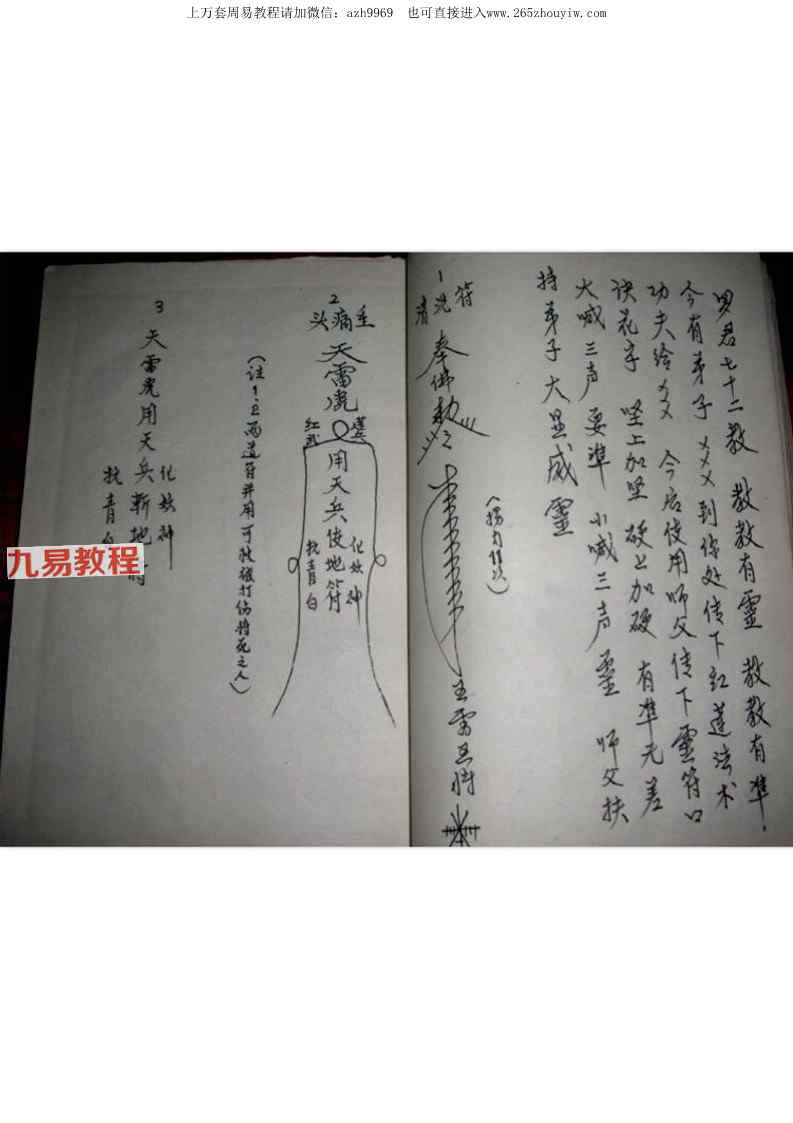 上万套周易教程请加微信：azh9969 也可直接进入www.265zhouyiw.com
男君七十二教 教教有靈 教教有準．
今有弟子 XXX到你处传下红莲法术
功夫给XX 今后使用师父传下靈符口
诀花字 坚上加坚 硬上加硬 有準无差
大喊三声要準 小喊三声靈 师父扶
持弟子大显威靈
1
清洗符
奉佛勅令
2
头痛重
天雷虎
用天兵使地符
化妖神
托青白
（注1.2两道符并用可治被打伤将死之人）
3
天雷鬼用天兵斬地
化妖神
托青白
九易教程